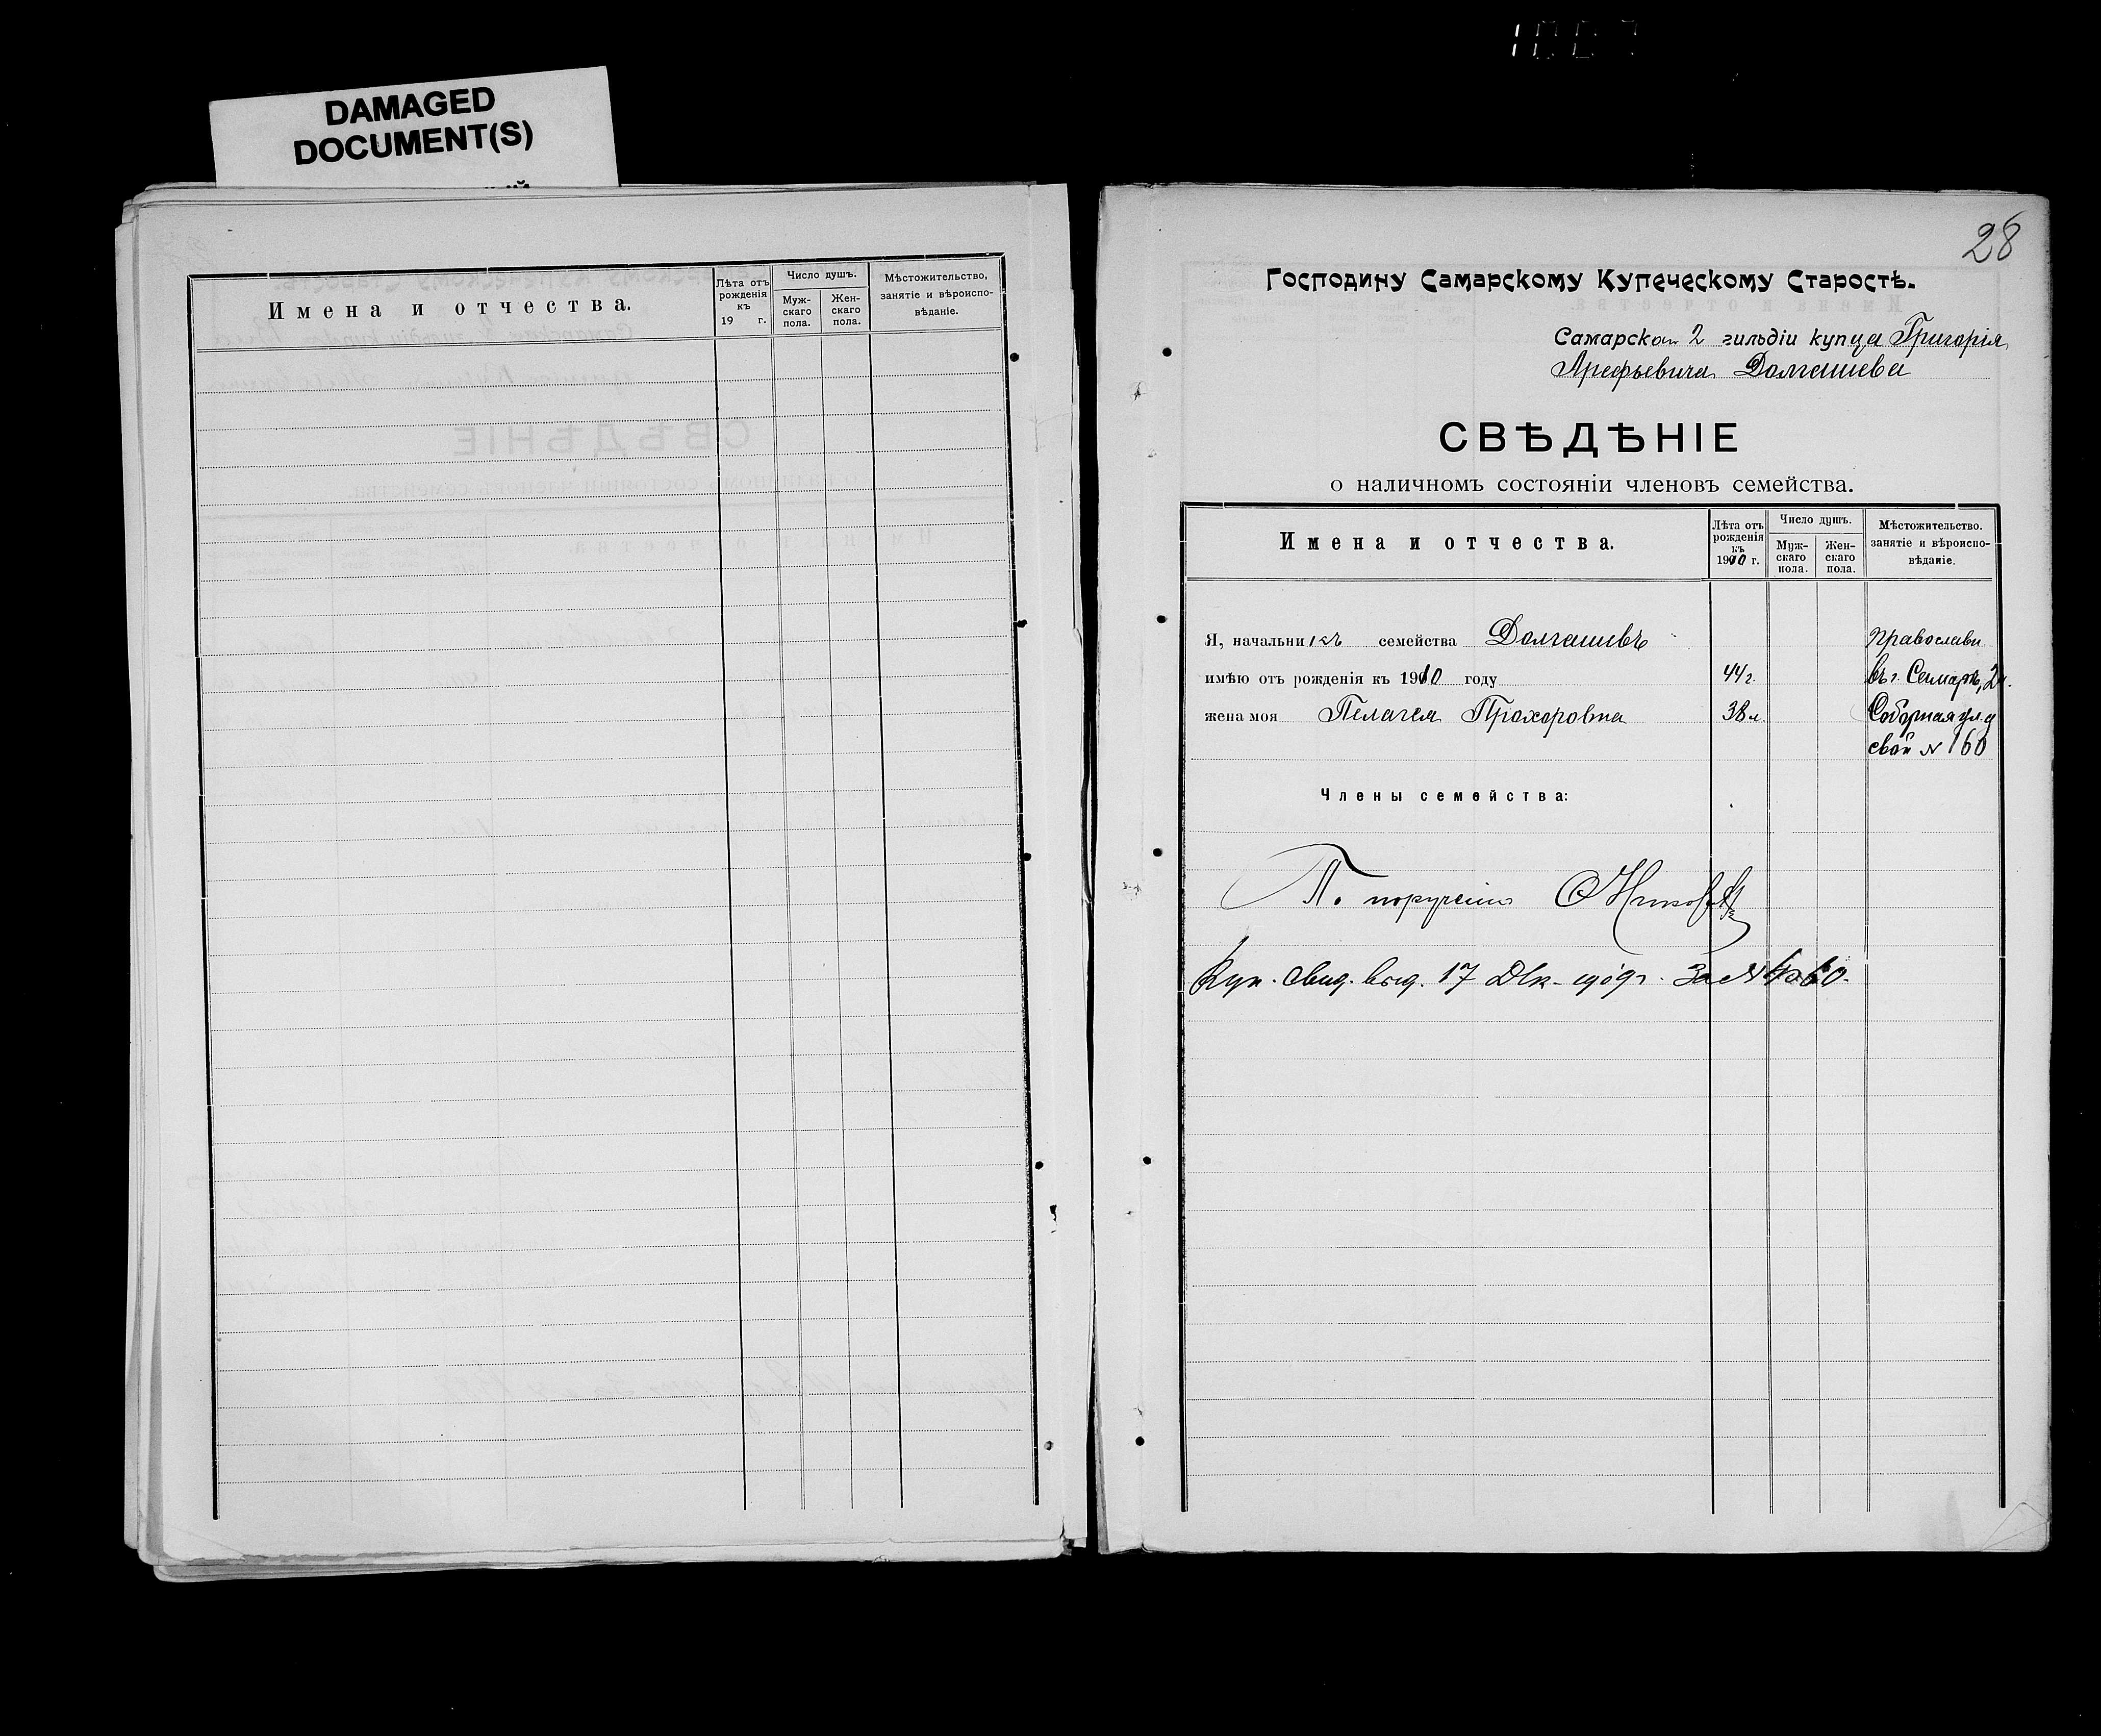 1007
DAMAGED
DOCUMENT(S)
Имена и отчества.
Лѣта отъ рожденія къ 19 г.
Число душъ.
Муж-скаго пола.
Жен-скаго пола.
Мѣстожительство, занятіе и вѣроиспо-вѣданіе.
28
Господину Самарскому Купеческому Старостѣ.
Самарско 2 гильдіи купца Григорія
Арефьевича Долгашева
СВѢДѢНІЕ
о наличномъ состояніи членовъ семейства.
Имена и отчества.
Лѣта отъ рожденія къ 1910 г.
Число душъ.
Муж-скаго пола.
Жен-скаго пола.
Мѣстожительство. занятіе и вѣроиспо-вѣданіе.
Я, начальникъ семейства Долгашевъ православн
имѣю отъ рожденія къ 1910 году 44 г. въ г. Самарѣ, 2 ч.
жена моя Пелагея Прохоровна 38 л. Соборная ул. д
свой № 160
Члены семейства:
По порученію
Куп. свид. выд. 17 Дек. 1909 г. За №